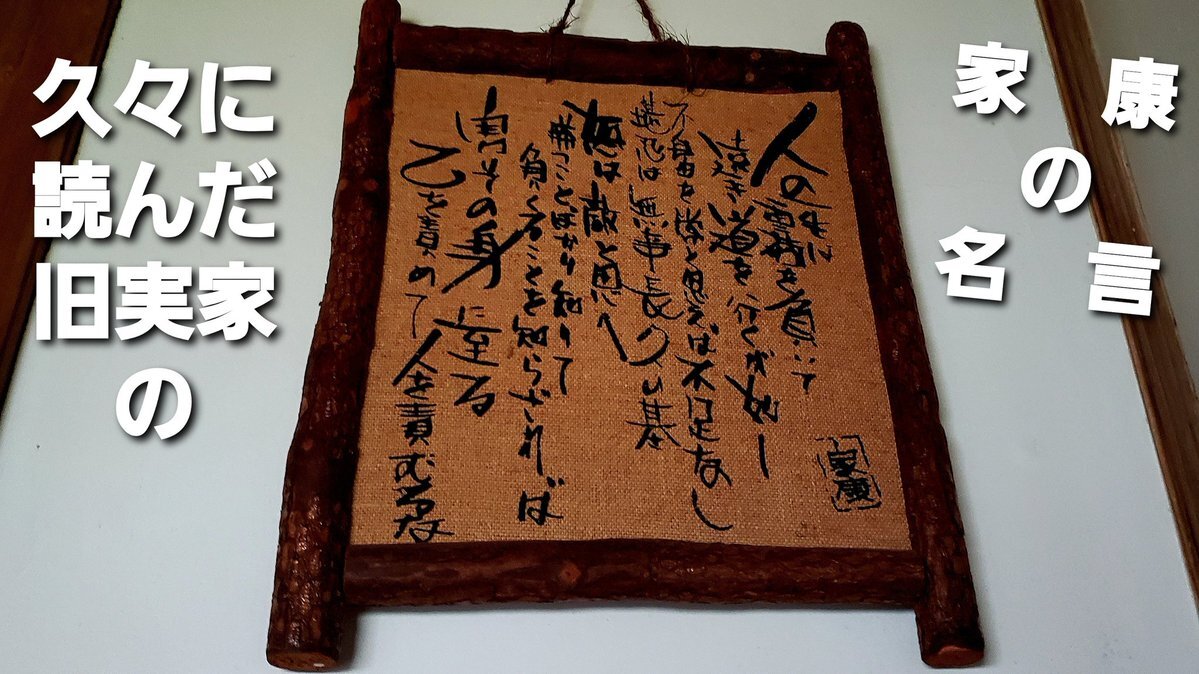 久々に
読んだ
旧実家
の
家康
の
名言
人の一生は重荷を負いて
遠き道を行くが如し
不自由を常と思えば不足なし
堪忍は無事長久の基
怒は敵と思へ
勝つことばかり知りて
負くることを知らざれば
害その身に至る
己を責めて人を責むるな
家康